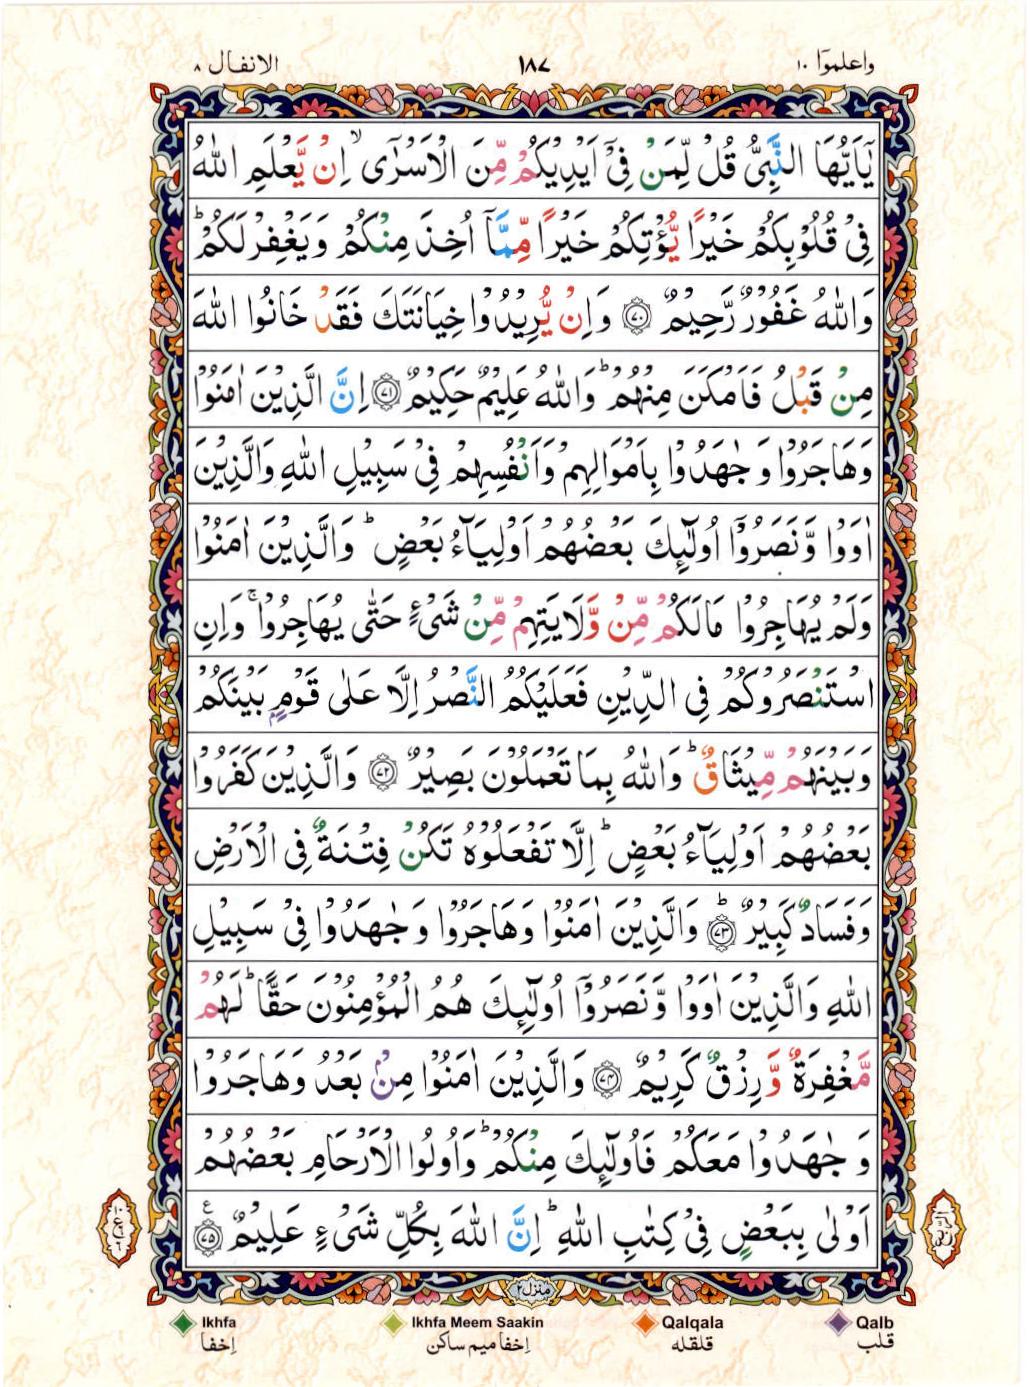 واعلموٓا ١٠
١٨٧
الانفال ٨
يٰٓاَيُّهَا النَّبِيُّ قُلْ لِّمَنْ فِيْٓ اَيْدِيْكُمْ مِّنَ الْاَسْرٰٓى ۙ اِنْ يَّعْلَمِ اللّٰهُ
فِيْ قُلُوْبِكُمْ خَيْرًا يُّؤْتِكُمْ خَيْرًا مِّمَّآ اُخِذَ مِنْكُمْ وَيَغْفِرْ لَكُمْ ؕ
وَاللّٰهُ غَفُوْرٌ رَّحِيْمٌ ﴿۷۰﴾ وَاِنْ يُّرِيْدُوْا خِيَانَتَكَ فَقَدْ خَانُوا اللّٰهَ
مِنْ قَبْلُ فَاَمْكَنَ مِنْهُمْ ؕ وَاللّٰهُ عَلِيْمٌ حَكِيْمٌ ﴿۷۱﴾ اِنَّ الَّذِيْنَ اٰمَنُوْا
وَهَاجَرُوْا وَجٰهَدُوْا بِاَمْوَالِهِمْ وَاَنْفُسِهِمْ فِيْ سَبِيْلِ اللّٰهِ وَالَّذِيْنَ
اٰوَوْا وَّنَصَرُوْٓا اُولٰٓئِكَ بَعْضُهُمْ اَوْلِيَآءُ بَعْضٍ ؕ وَالَّذِيْنَ اٰمَنُوْا
وَلَمْ يُهَاجِرُوْا مَا لَكُمْ مِّنْ وَّلَايَتِهِمْ مِّنْ شَيْءٍ حَتّٰى يُهَاجِرُوْا ۚ وَاِنِ
اسْتَنْصَرُوْكُمْ فِي الدِّيْنِ فَعَلَيْكُمُ النَّصْرُ اِلَّا عَلٰى قَوْمٍۭ بَيْنَكُمْ
وَبَيْنَهُمْ مِّيْثَاقٌ ؕ وَاللّٰهُ بِمَا تَعْمَلُوْنَ بَصِيْرٌ ﴿۷۲﴾ وَالَّذِيْنَ كَفَرُوْا
بَعْضُهُمْ اَوْلِيَآءُ بَعْضٍ ؕ اِلَّا تَفْعَلُوْهُ تَكُنْ فِتْنَةٌ فِي الْاَرْضِ
وَفَسَادٌ كَبِيْرٌ ؕ ﴿۷۳﴾ وَالَّذِيْنَ اٰمَنُوْا وَهَاجَرُوْا وَجٰهَدُوْا فِيْ سَبِيْلِ
اللّٰهِ وَالَّذِيْنَ اٰوَوْا وَّنَصَرُوْٓا اُولٰٓئِكَ هُمُ الْمُؤْمِنُوْنَ حَقًّا ؕ لَهُمْ
مَّغْفِرَةٌ وَّرِزْقٌ كَرِيْمٌ ﴿۷۴﴾ وَالَّذِيْنَ اٰمَنُوْا مِنْۢ بَعْدُ وَهَاجَرُوْا
وَجٰهَدُوْا مَعَكُمْ فَاُولٰٓئِكَ مِنْكُمْ ؕ وَاُولُوا الْاَرْحَامِ بَعْضُهُمْ
اَوْلٰى بِبَعْضٍ فِيْ كِتٰبِ اللّٰهِ ؕ اِنَّ اللّٰهَ بِكُلِّ شَيْءٍ عَلِيْمٌ ﴿۷۵﴾ ع
منزل ٢
Ikhfa
Ikhfa Meem Saakin
Qalqala
Qalb
اِخفا
اِخفا میم ساکن
قلقله
قلب